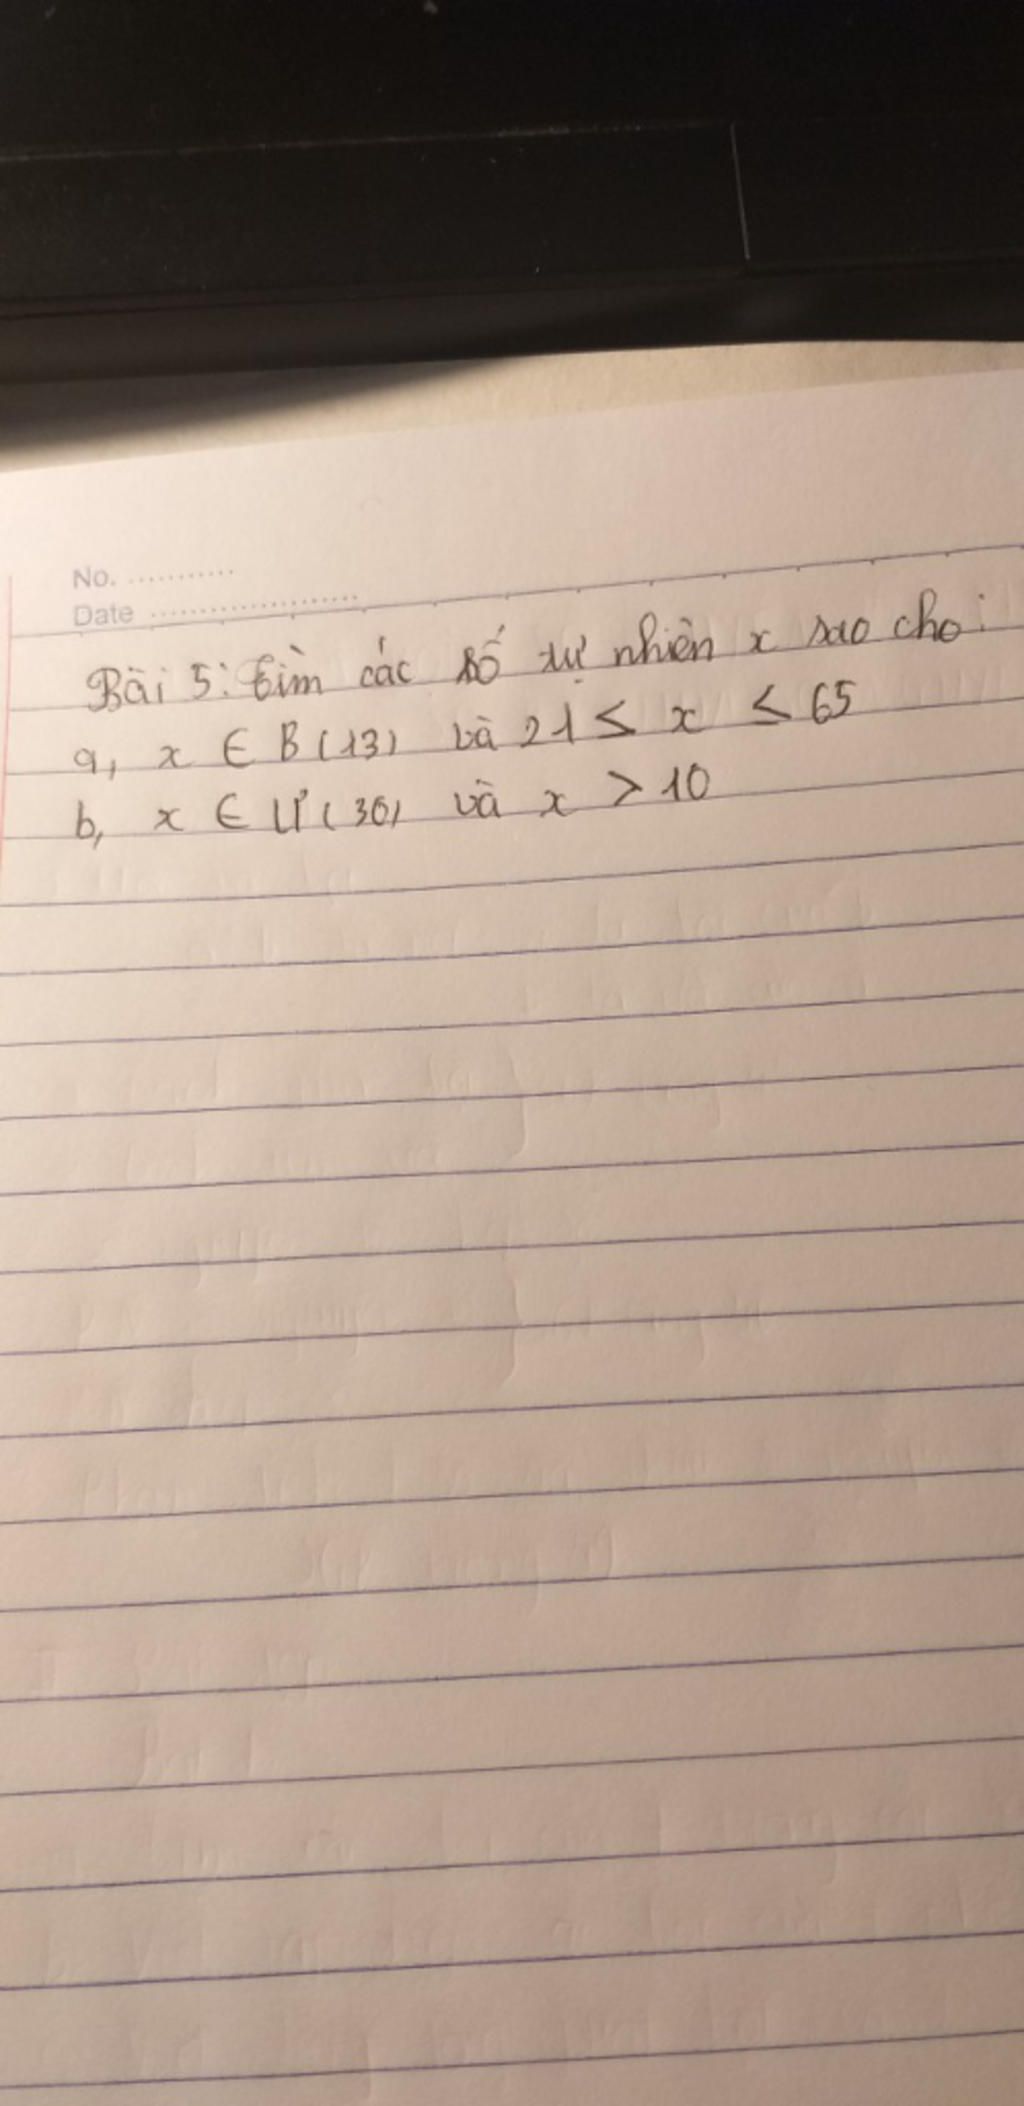 No. ...........
Date .....................
Bài 5: Tìm các số tự nhiên x sao cho:
a, x ∈ B(13) và 21 ≤ x ≤ 65
b, x ∈ Ư(30) và x > 10